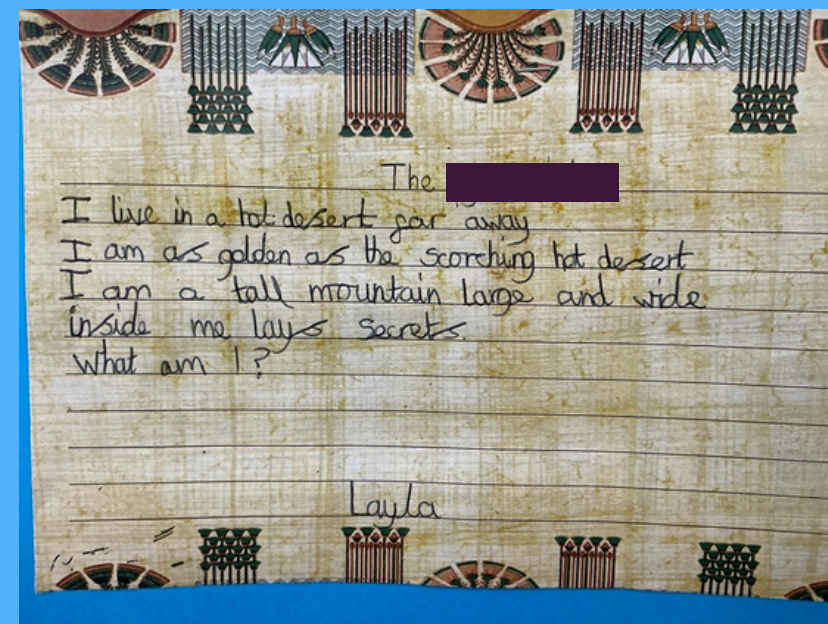 The
I live in a hot desert far away
I am as golden as the scorching hot desert
I am a tall mountain large and wide
inside me lays secrets.
What am I?
Layla